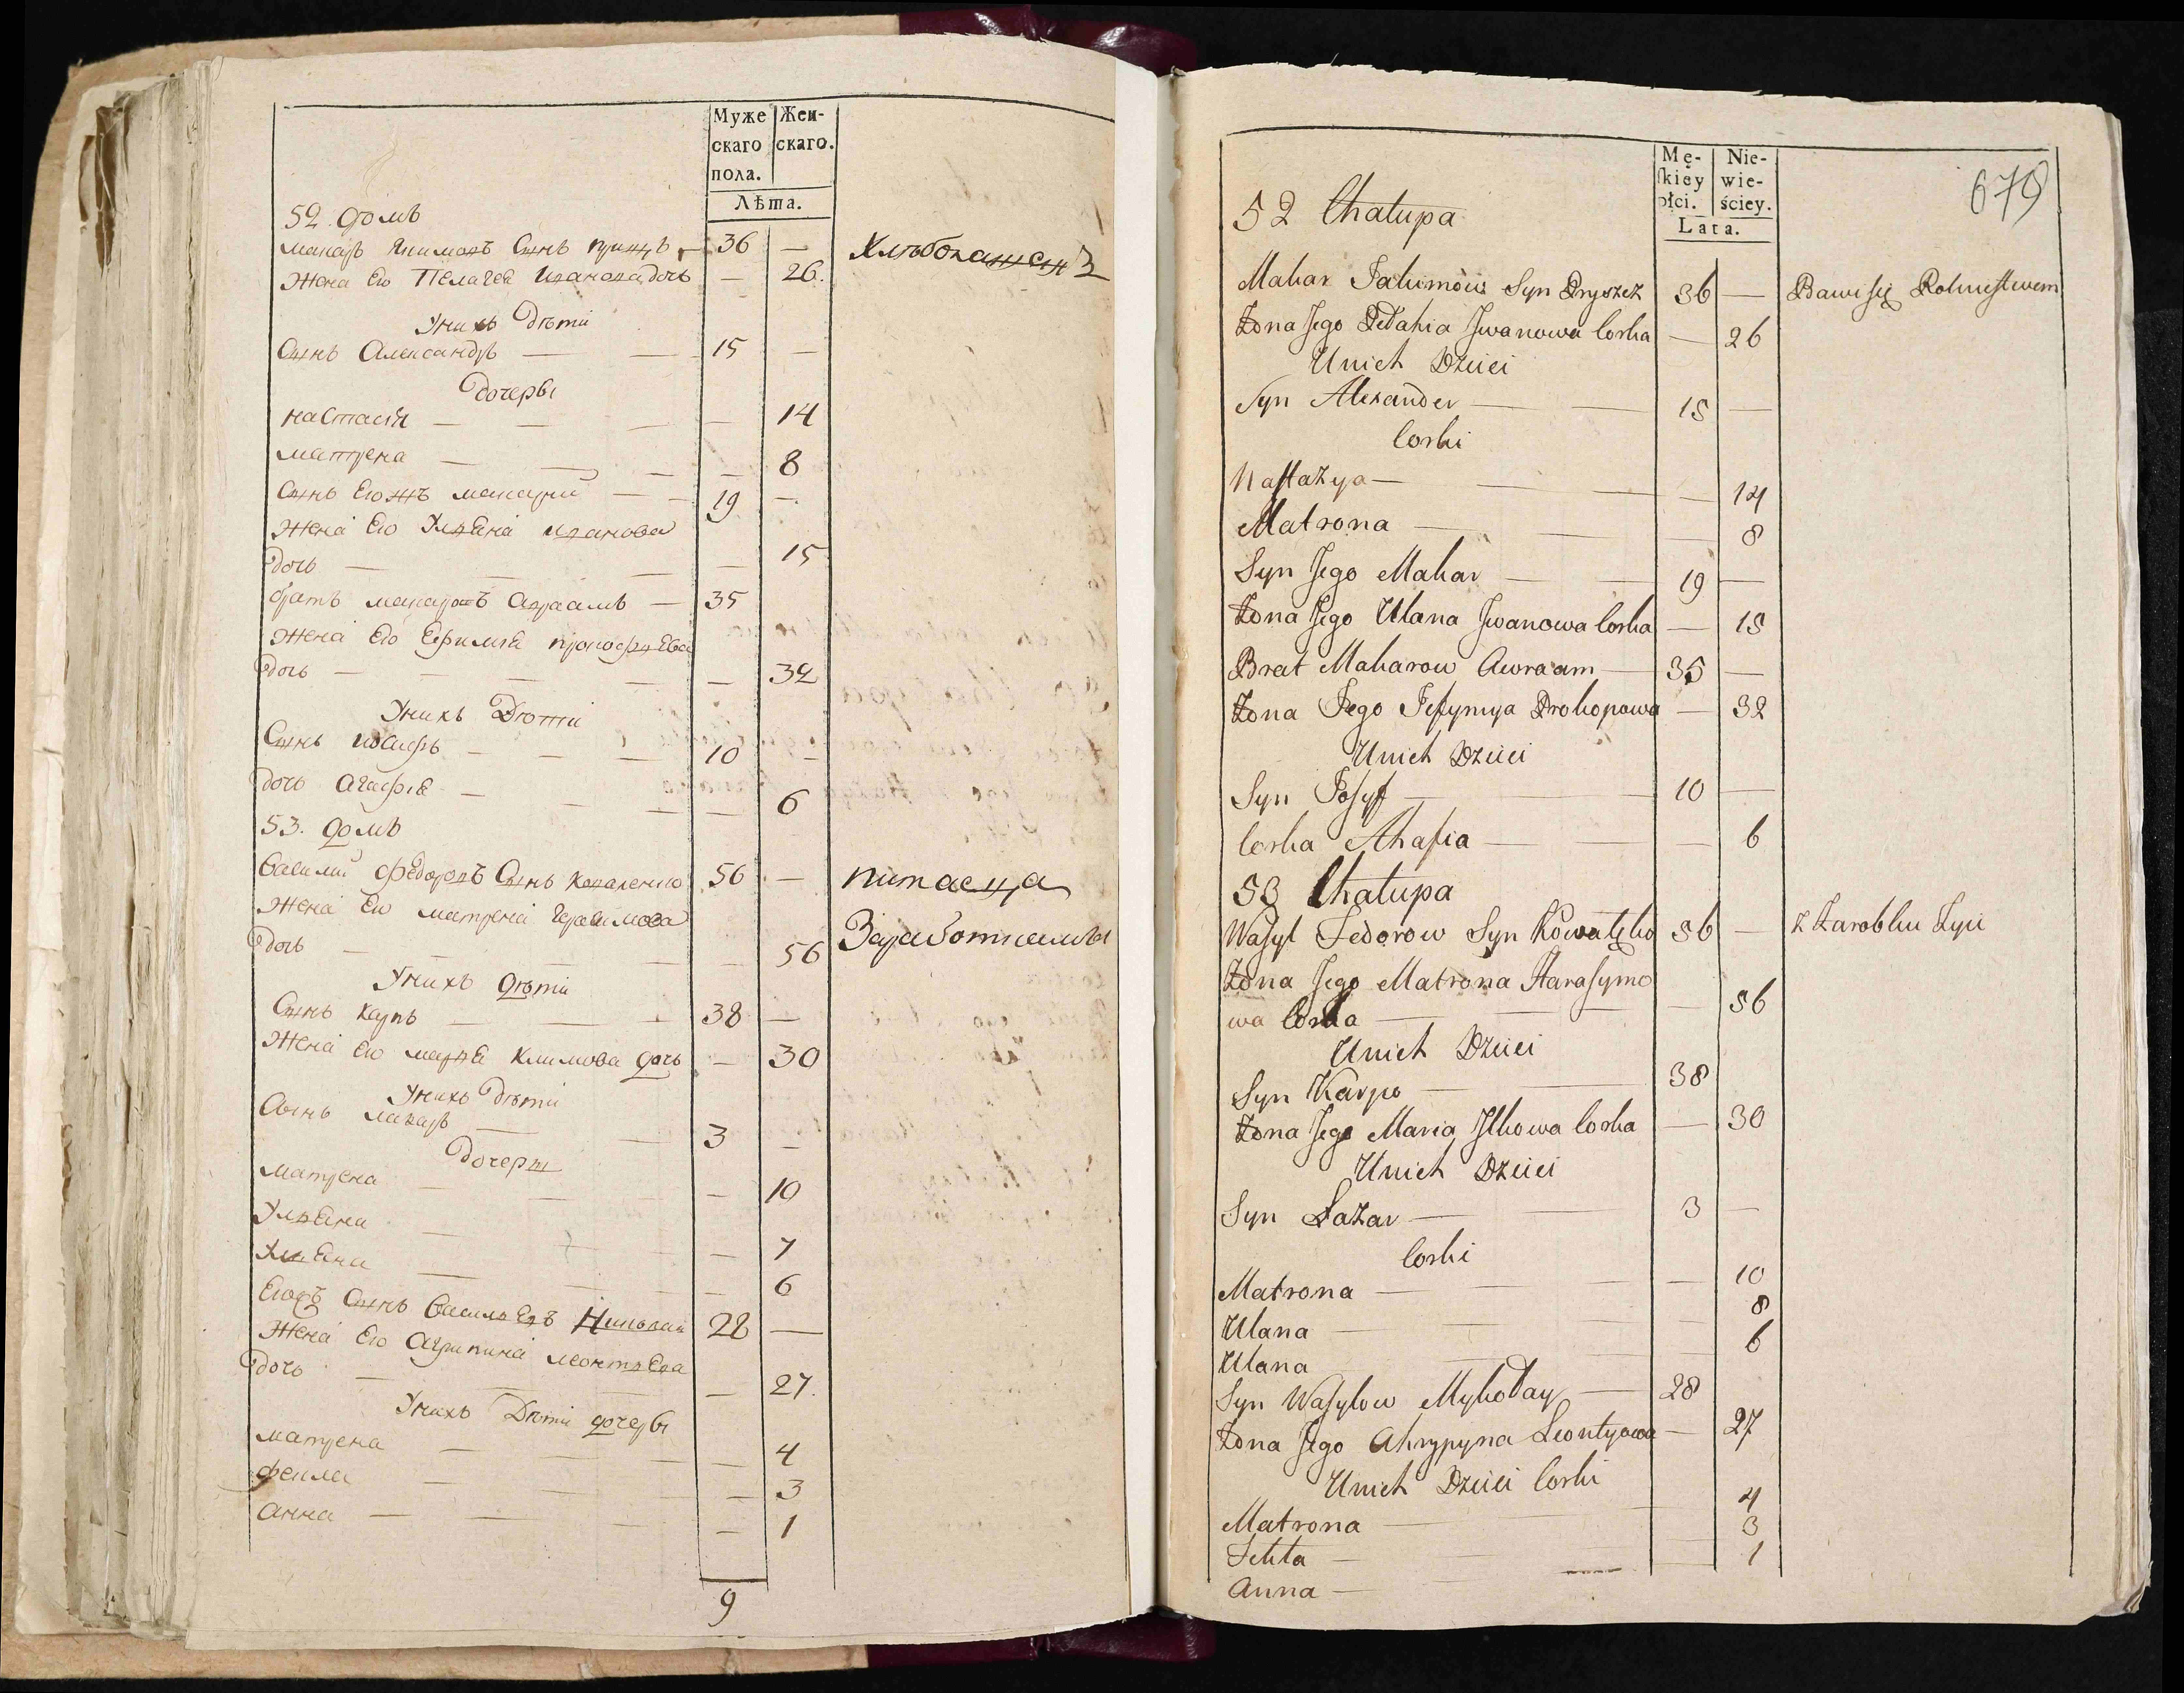 Муже Жен-
скаго скаго.
пола.
Лѣта.
52. домъ
макаръ Якимовъ Сынъ прищъ 36 —
Жена Его Пелагея Иванова дочь — 26.
Унихъ Дѣти
Сынъ Александръ — — 15 —
Дочеры
наСтасія — — — — 14
матрена — — — — 8
Сынъ Егожъ макарій — — 19 —
Жена Его Ульяна иванова
дочь — — — — 15
братъ макаровъ авраамъ — 35
Жена Его Ефимия прокофьева
дочь — — — — — 32
Унихъ Дѣти
Сынъ иосифъ — — — 10 —
дочь агафия — — — — 6
53. домъ
Василий Федоровъ Сынъ Коваленко 56 — питаеца
Жена Его матрена Герасимова Заработками
дочь — — — 56
Унихъ дѣти
Сынъ карпъ — — — 38 —
Жена Его марья Климова дочь — 30
Унихъ дѣти
Сынъ лазаръ — — 3 —
Дочеры
матрена — — — 10
Ульяна — — — 7
Ульяна — — — 6
Егожъ Сынъ Васильевъ Николай 28 —
Жена Его Агрипина леонтьева
дочь — — — — 27.
Унихъ Дѣти дочеры
матрена — — — — 4
фекла — — — 3
анна — — — — 1
9
Mę- Nie-
skiey wie-
płci. ściey.
Lata.
679
52 Chałupa
Makar Jakimów Syn Pryszcz 36 — Bawi się Rolnictwem
Żona Jego Pełahia Jwanowa Corka — 26
Unich Dzieci
Syn Alexander — — 15 —
Corki
Nastazya — — — — 14
Matrona — — — 8
Syn Jego Makar — — 19 —
Żona Jego Ulana Jwanowa Corka — 15
Brat Makarow Awraam — 35 —
Żona Jego Jefymya Prokopowa — 32
Unich Dzieci
Syn Josyf — — 10 —
Corka Ahafia — — — 6
53 Chałupa
Wasyl Fedorow Syn Kowalęko 56 — z Zarobku Zyie
Żona Jego Matrona Harasymo
wa Corka — — — — 56
Unich Dzieci
Syn Karpo — — 38
Żona Jego Maria Jlkowa Corka — 30
Unich Dzieci
Syn Łazar — — 3 —
Corki
Matrona — — — — 10
Ulana — — — — 8
Ulana — — — — 6
Syn Wasylow Mykołay — 28
Żona Jego Ahrypyna Leontyowa — 27
Unich Dzieci Corki
Matrona — — 4
Fekła — — — 3
Anna — — — 1